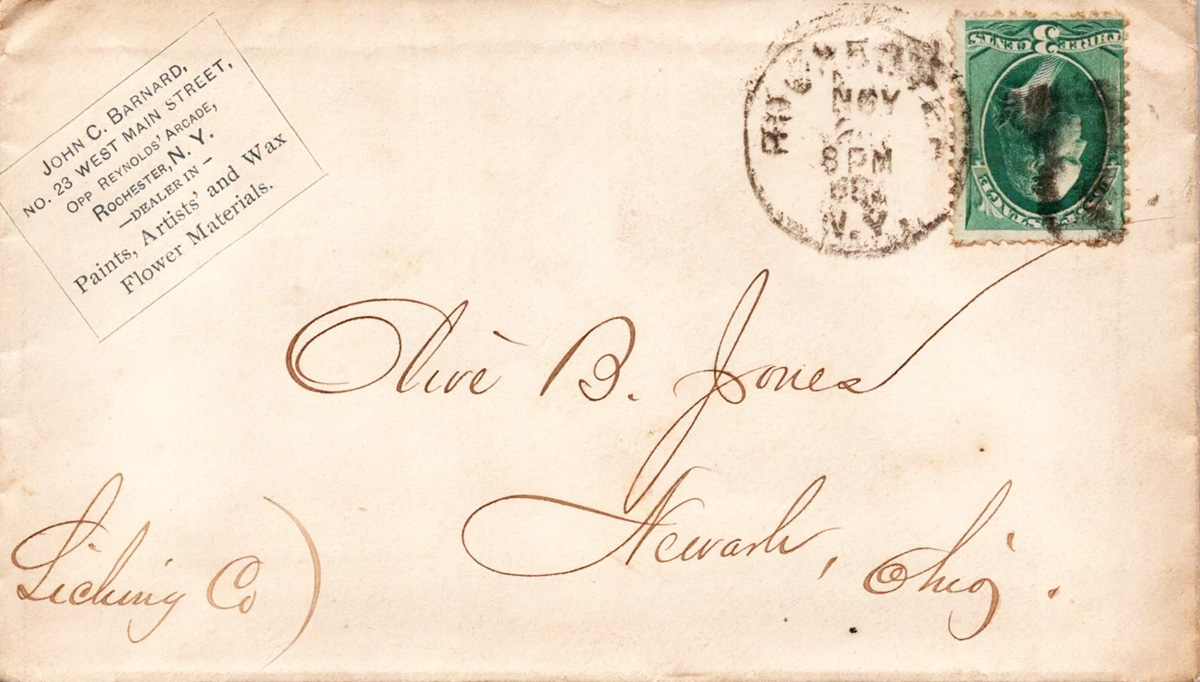 JOHN C. BARNARD,
NO. 23 WEST MAIN STREET,
OPP REYNOLDS' ARCADE,
ROCHESTER, N. Y.
—DEALER IN—
Paints, Artists' and Wax
Flower Materials.
ROCHESTER
NOV
8 PM
N.Y.
3
THREE CENTS
U.S. POSTAGE
Olive B. Jones
Newark, Ohio.
Licking Co)